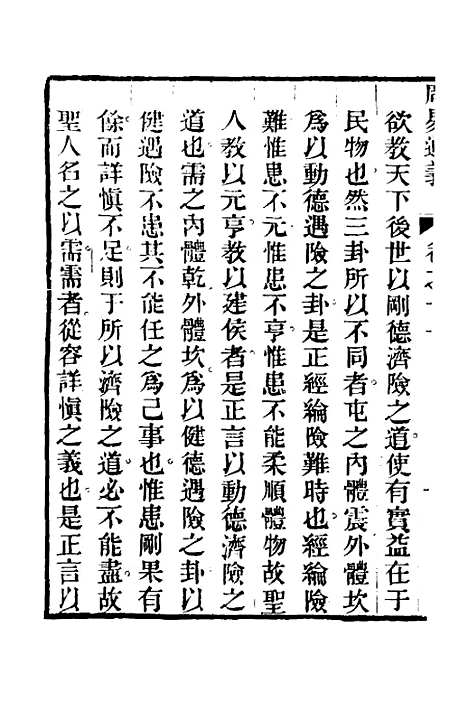 欲教天下後世以剛德濟險之道使有實益在于
民物也然三卦所以不同者屯之內體震外體坎
爲以動德遇險之卦是正經綸險難時也經綸險
難惟患不元惟患不亨惟患不能柔順體物故聖
人教以元亨教以建侯者是正言以動德濟險之
道也需之內體乾外體坎爲以健德遇險之卦以
健遇險不患其不能任之爲己事也惟患剛果有
餘而詳慎不足則于所以濟險之道必不能盡故
聖人名之以需需者從容詳慎之義也是正言以